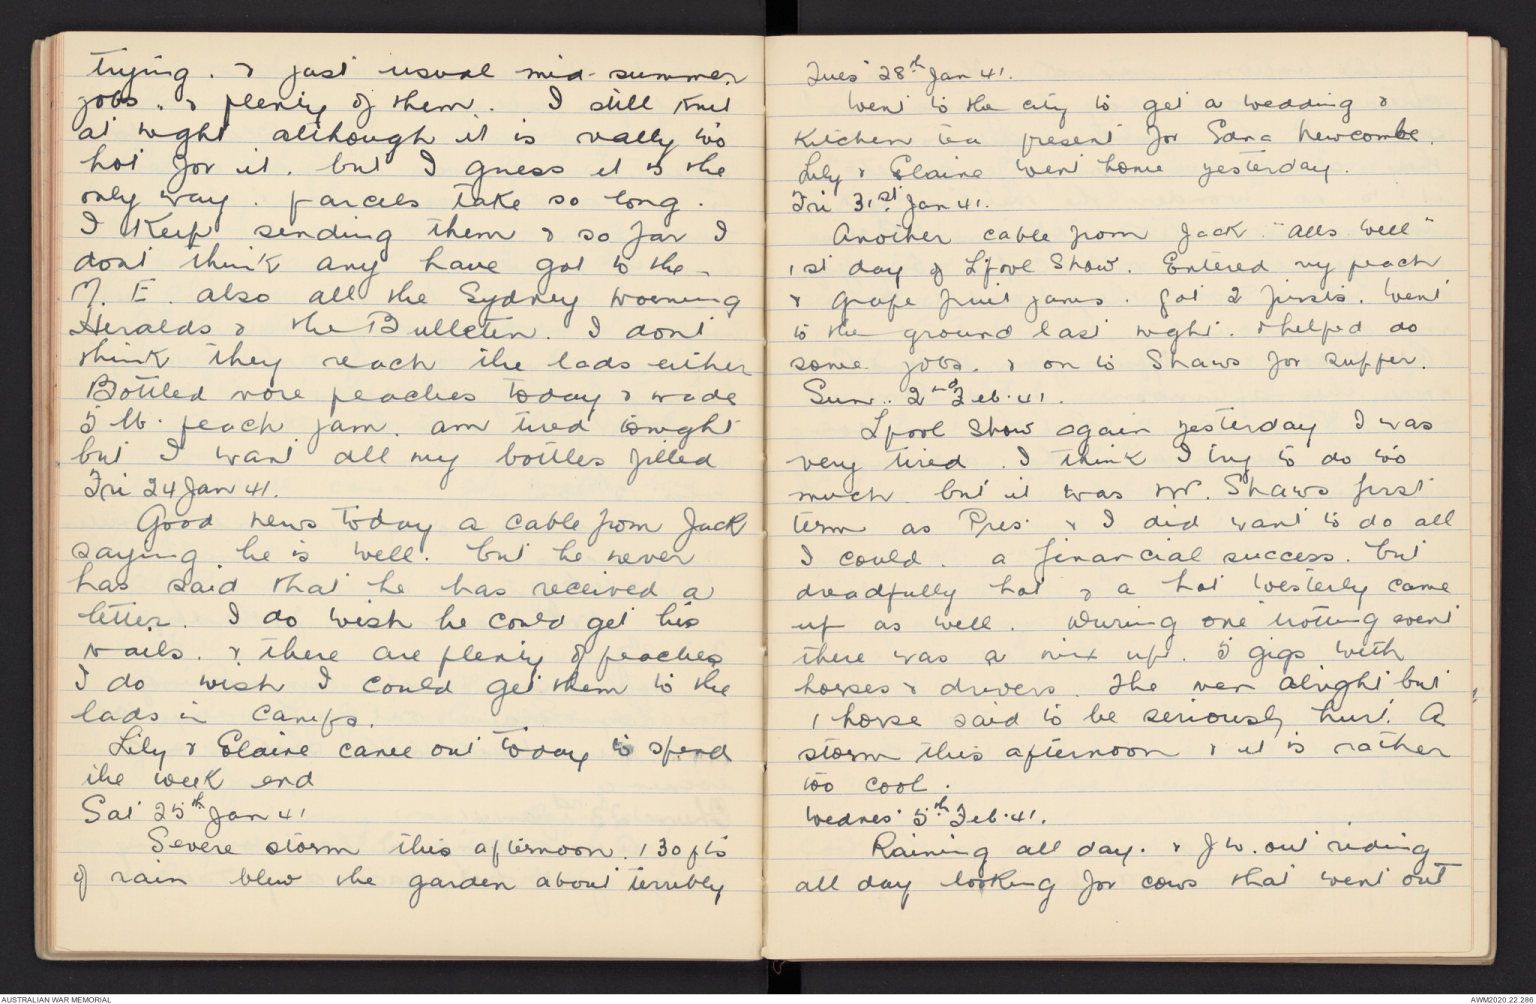 trying. & just usual mid-summer
jobs. & plenty of them. I still knit
at night although it is really too
hot for it. but I guess it is the
only way. parcels take so long.
I keep sending them & so far I
dont think any have got to the
M. E. also all the Sydney Morning
Heralds & the Bulletin. I dont
think they reach the lads either
Bottled more peaches today & made
5 lb. peach jam. am tired tonight
but I want all my bottles filled
Fri 24 Jan 41.
Good news today a cable from Jack
saying he is well. but he never
has said that he has received a
letter. I do wish he could get his
mails. & there are plenty of peaches
I do wish I could get them to the
lads in camps.
Lily & Elaine came out today to spend
the week end
Sat 25th Jan 41
Severe storm this afternoon. 130 pts
of rain blew the garden about terribly
Tues 28th Jan 41.
Went to the city to get a wedding &
Kitchen tea present for Edna Newcombe.
Lily & Elaine went home yesterday.
Fri 31st Jan 41.
Another cable from Jack "alls well"
1st day of L'pool Show. Entered my peach
& grape fruit jams. Got 2 firsts. Went
to the ground last night. & helped do
some jobs. & on to Shaws for supper.
Sun. 2nd Feb. 41.
L'pool Show again yesterday I was
very tired. I think I try to do too
much but it was Mr. Shaws first
term as Pres. & I did want to do all
I could. a financial success. but
dreadfully hot & a hot Westerly came
up as well. During one trotting event
there was a mix up. 5 gigs with
horses & drivers. The men alright but
1 horse said to be seriously hurt. A
storm this afternoon & it is rather
too cool.
Wednes 5th Feb. 41.
Raining all day. & J W. out riding
all day looking for cows that went out
AUSTRALIAN WAR MEMORIAL
AWM2020.22.286